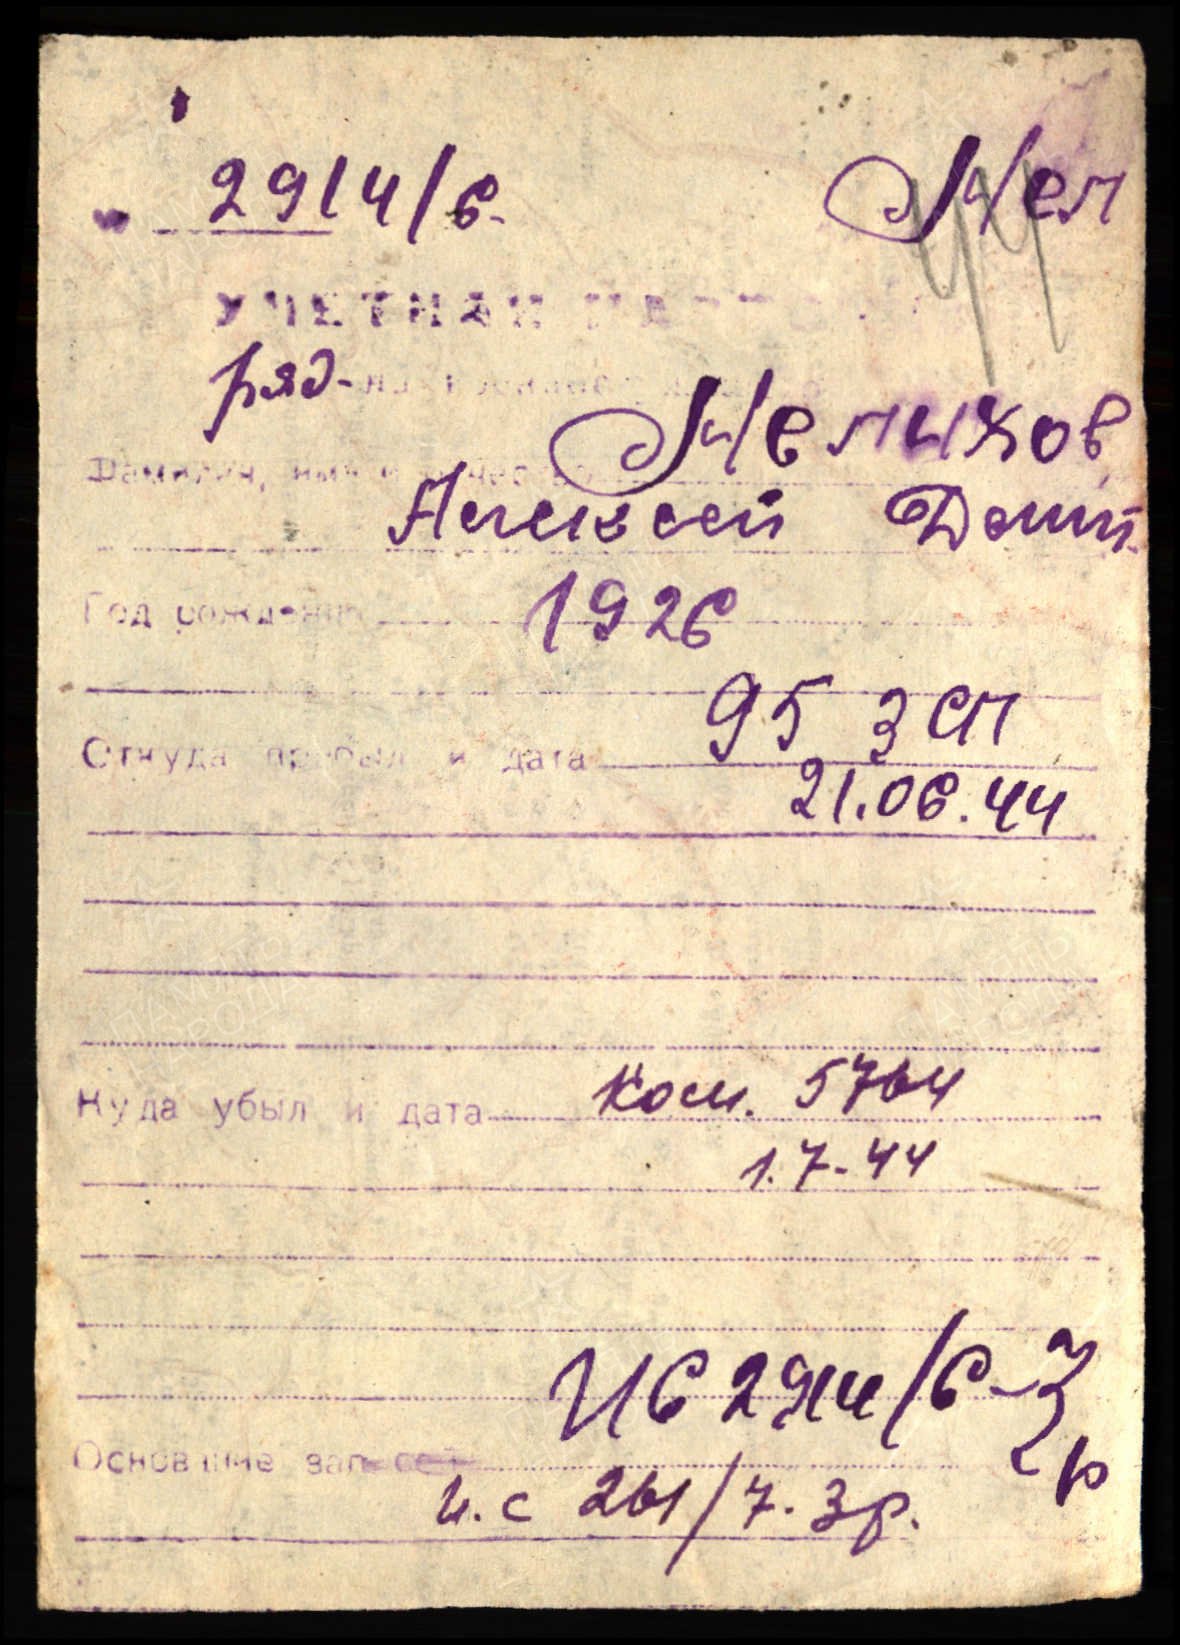 2914/6. Мел
УЧЕТНАЯ
ряд-
Мелихов
Фамилия, имя и отчество
Алексей Дмит.
Год рождения 1926
95 ЗСП
Откуда прибыл и дата
21.06.44
Куда убыл и дата Ком. 5764
1.7-44
ИС 2914/6-3
р
Основание записей
и.с 261/7. 3р.